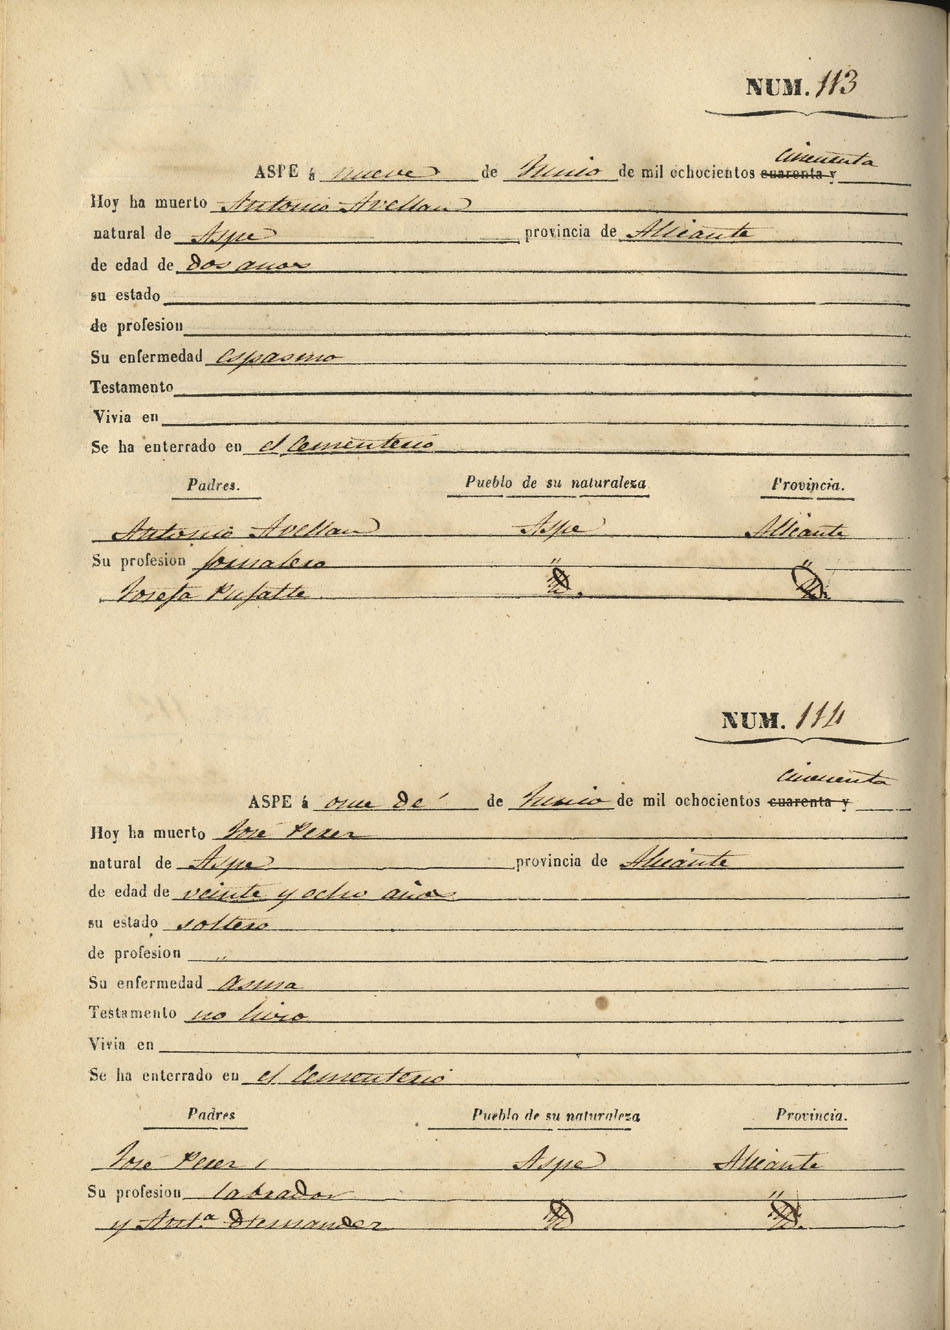 NUM. 113
cincuenta
ASPE á nueve de Junio de mil ochocientos cuarenta y
Hoy ha muerto Antonio Avellan
natural de Aspe provincia de Alicante
de edad de dos años
su estado
de profesion
Su enfermedad espasmo
Testamento
Vivia en
Se ha enterrado en el Cementerio
Padres. Pueblo de su naturaleza Provincia.
Antonio Avellan Aspe Alicante
Su profesion jornalero " "
Josefa Pujalte Yd. Yd.
NUM. 114
cincuenta
ASPE á once de de Junio de mil ochocientos cuarenta y
Hoy ha muerto José Perez
natural de Aspe provincia de Alicante
de edad de veinte y ocho años
su estado soltero
de profesion "
Su enfermedad asma
Testamento no hizo
Vivia en
Se ha enterrado en el Cementerio
Padres Pueblo de su naturaleza Provincia.
José Perez Aspe Alicante
Su profesion labrador "
y Antª Hernandez Yd. Yd.